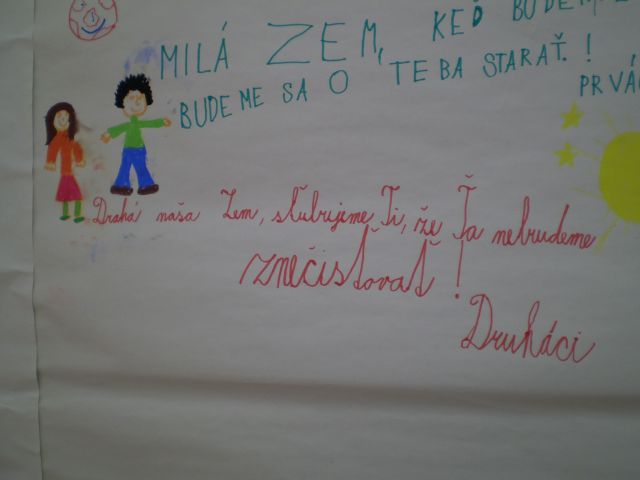 MILÁ ZEM, KEĎ BUDEME
BUDEME SA O TEBA STARAŤ!
PRVÁ
Drahá naša Zem, sľubujeme Ti, že Ťa nebudeme
znečisťovať!
Druháci